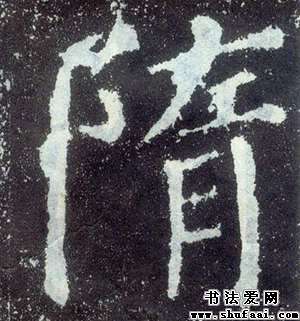 隋
书法爱网
www.shufaai.com